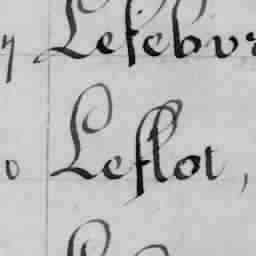 Lefebvr
Leflot,